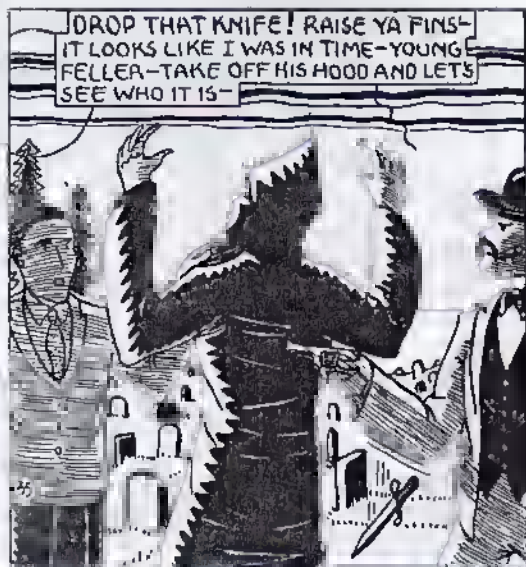 DROP THAT KNIFE! RAISE YA FINS-
IT LOOKS LIKE I WAS IN TIME-YOUNG
FELLER-TAKE OFF HIS HOOD AND LET'S
SEE WHO IT IS-